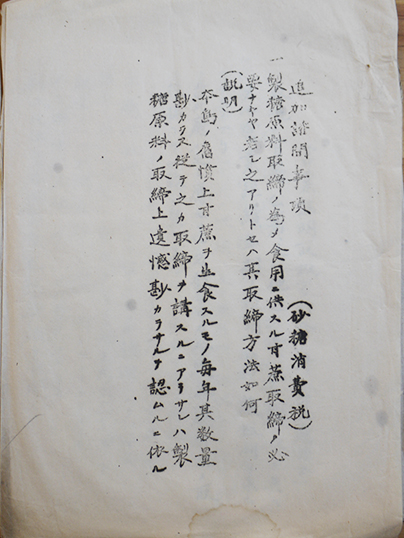 追加諮問事項
(砂糖消費税)
一 製糖原料取締ノ為メ食用ニ供スル甘蔗取締ノ必
要ナキヤ若シ之アリトセハ其取締方法如何
(説明)
本島ノ舊慣上甘蔗ヲ生食スルモノ毎年其数量
尠カラス従テ之カ取締ヲ講スルニアラサレハ製
糖原料ノ取締上遺憾尠カラサルヲ認ムルニ依ル